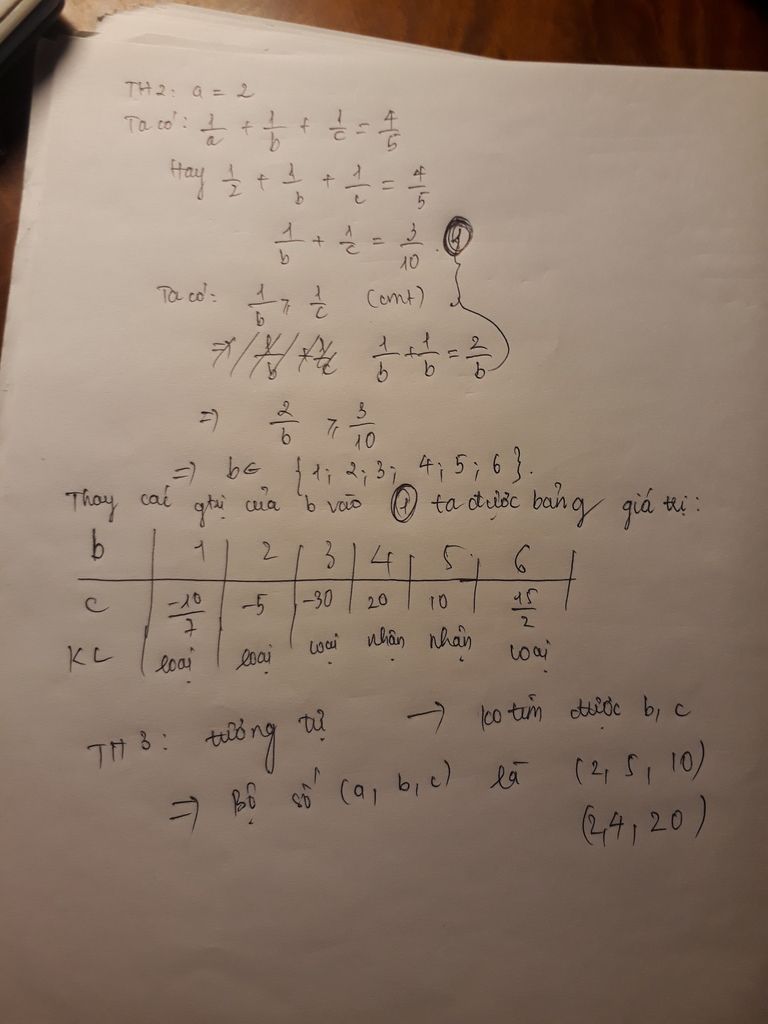 TH2: a = 2
Ta có: 1/a + 1/b + 1/c = 4/5
Hay 1/2 + 1/b + 1/c = 4/5
1/b + 1/c = 3/10
Ta có: 1/b ⩾ 1/c (cmt)
1/b + 1/b = 2/b
=> 2/b ⩾ 3/10
=> b∈ {1; 2; 3; 4; 5; 6}.
Thay các gtrị của b vào ① ta được bảng giá trị:
b | 1 | 2 | 3 | 4 | 5 | 6
c | -10/7 | -5 | -30 | 20 | 10 | 15/2
KL | loại | loại | loại | nhận | nhận | loại
TH3: tương tự → ko tìm được b, c
=> Bộ số (a, b, c) là (2, 5, 10)
(2,4, 20)